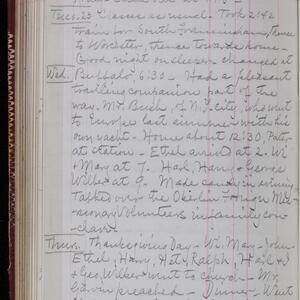 Tues. 23 Classes as usual. Took 2:42
train for South Framingham, thence
to Worcester, thence toward home.
Good night on sleeper - changed at
Wed. Buffalo, 6:30 - Had a pleasant
travelling companion part of the
way. Mr. Bush of N.Y. city, who went
to Europe last summer with his
own yacht - Home about 12:30,
at station - Ethel arrived at 2. Wi
+ Mary at 7. Hail, Harry + George
Wilber at 9. Made candy in evening
Talked over the Oberlin
Volunteers
Thurs. Thanksgiving Day - Wi, Mary - John
Ethel, Harry, Het, Ralph, Hail +
+ Geo. Wilber went to church - Mr.
preached - Dinner - Went